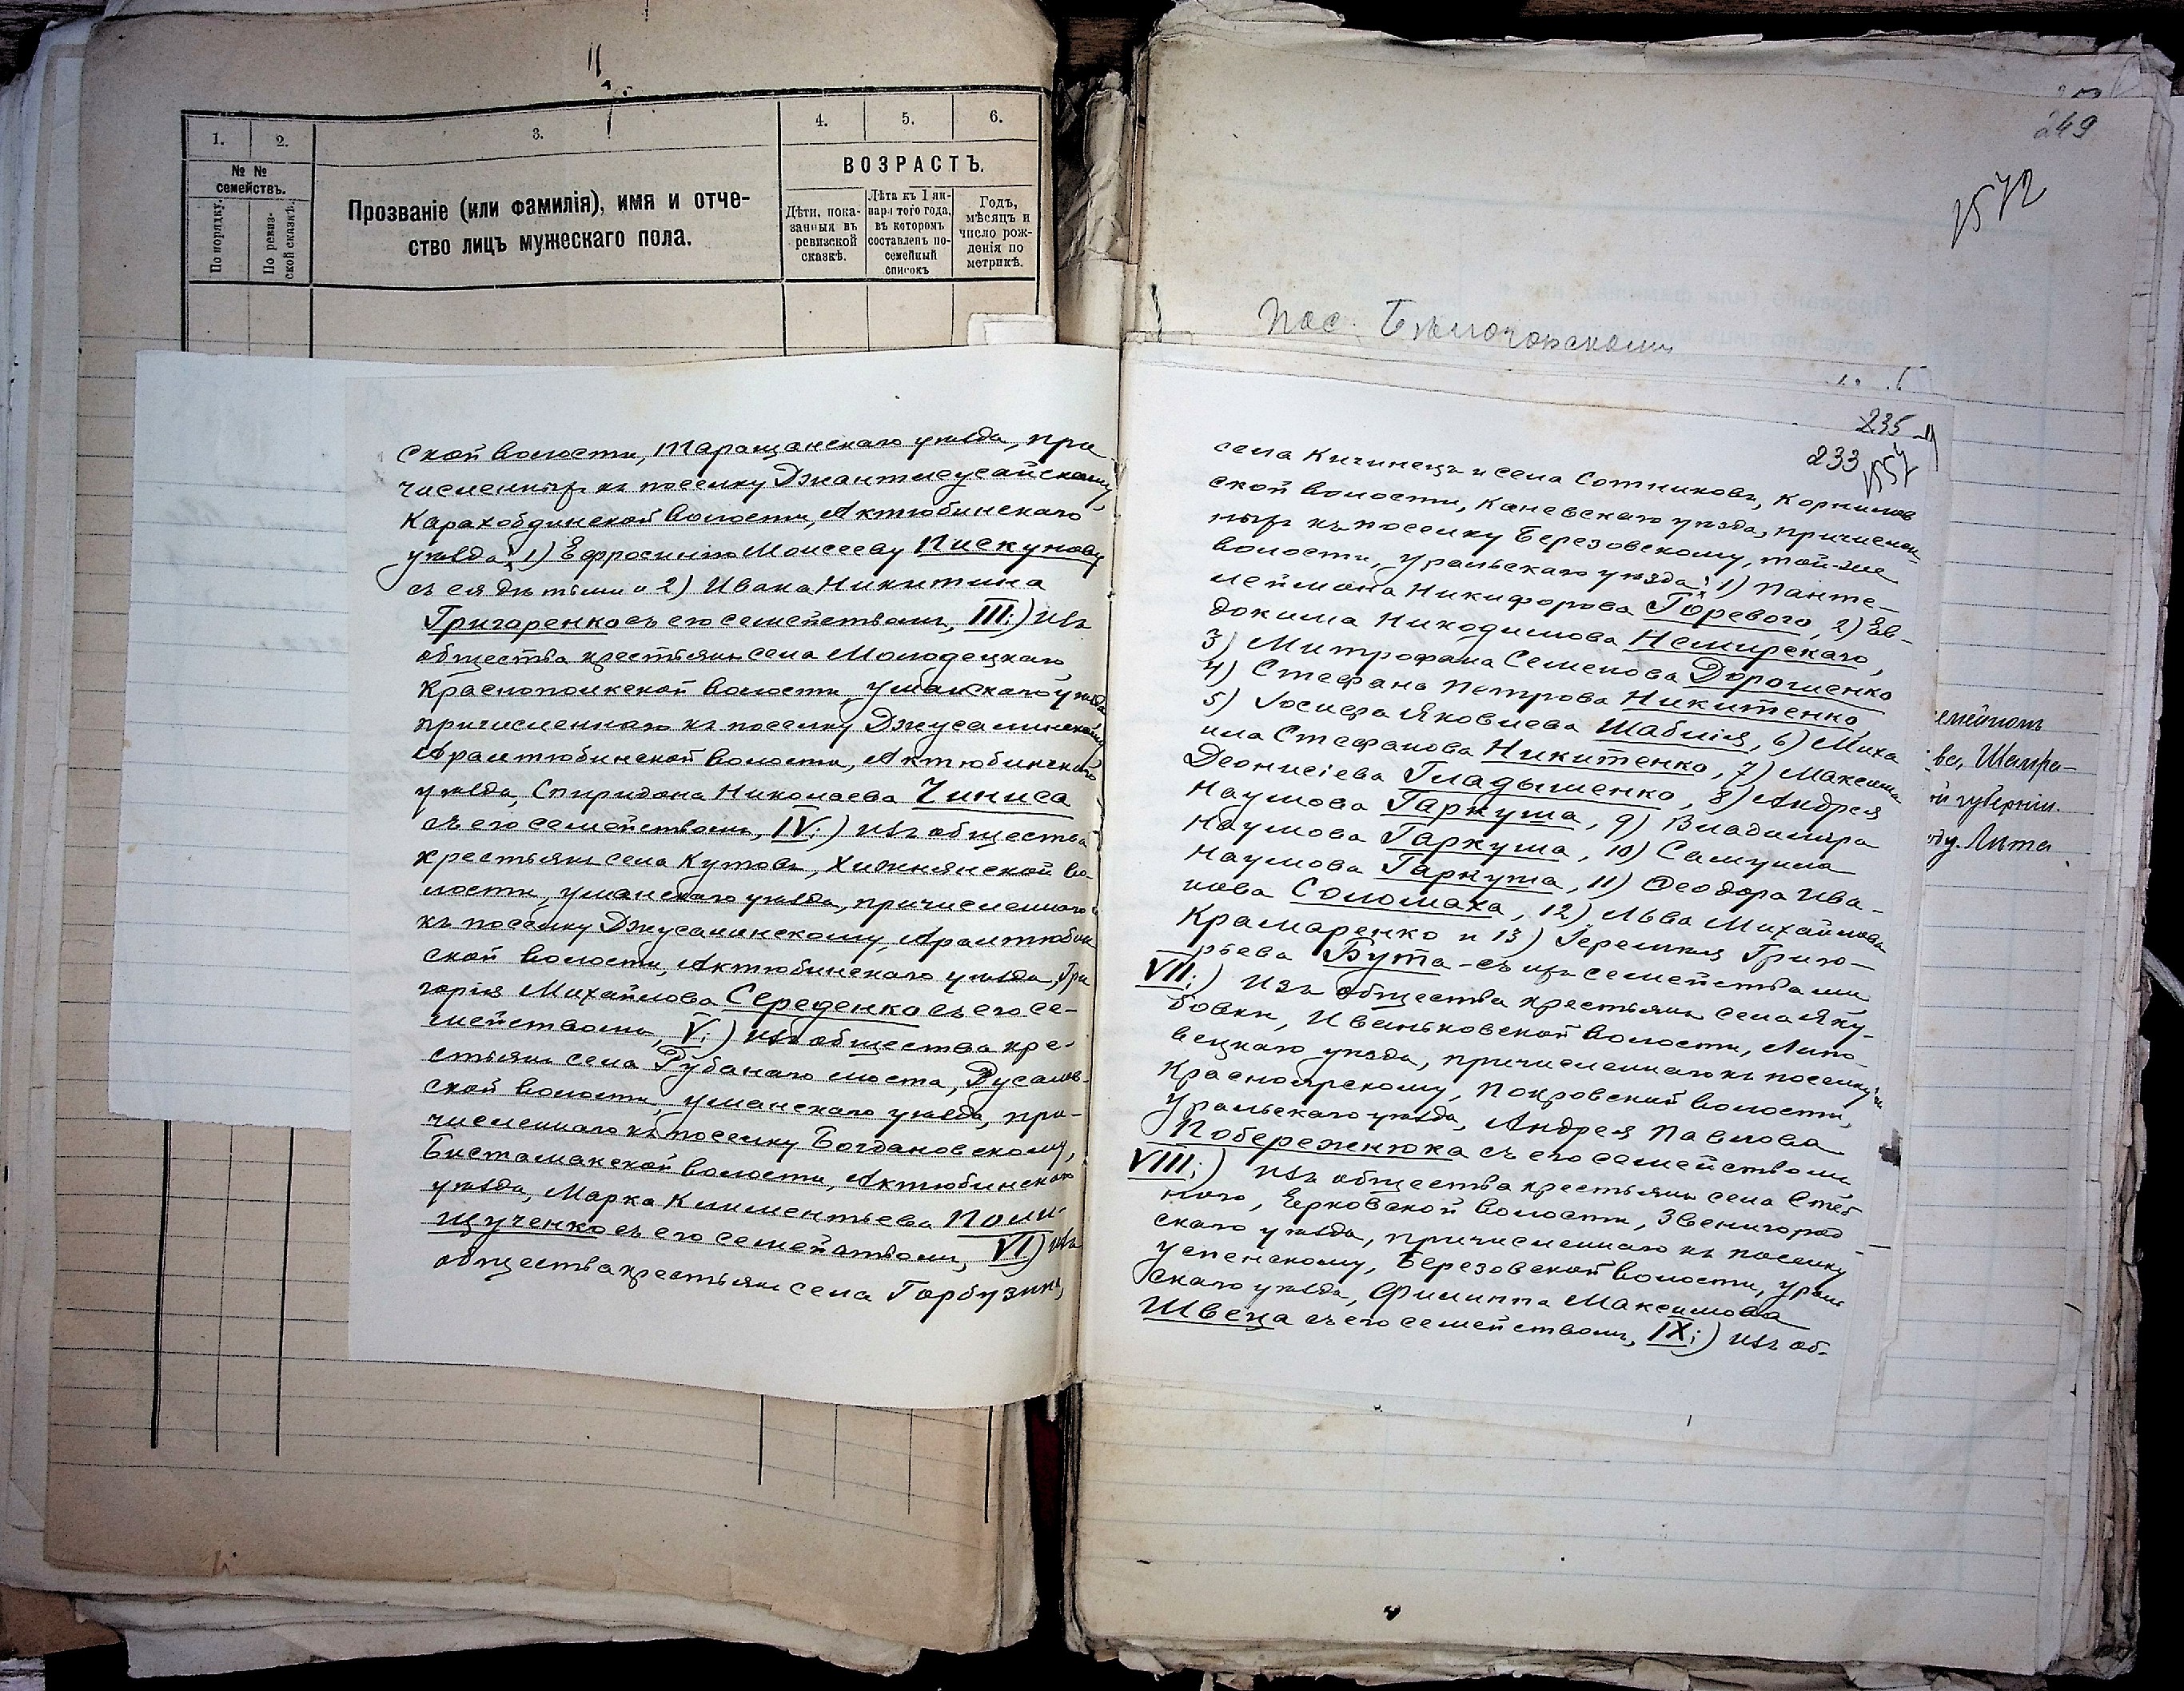 1.
2.
3.
4.
5.
6.
№ №
семействъ.
По порядку.
По ревиз-
ской сказкѣ.
Прозваніе (или фамилія), имя и отче-
ство лицъ мужескаго пола.
ВОЗРАСТЪ.
Дѣти, пока-
занныя въ
ревизской
сказкѣ.
Лѣта къ 1 ян-
варя того года,
въ которомъ
составленъ по-
семейный
списокъ
Годъ,
мѣсяцъ и
число рож-
денія по
метрикѣ.
ской волости, Таращанскаго уѣзда, при
численныхъ къ поселку Джантлеусайскому,
Карахобдинской волости, Актюбинскаго
уѣзда: 1) Ефросинію Моисееву Пискунову
съ ея дѣтьми и 2) Ивана Никитина
Григоренко съ его семействомъ, III;) изъ
общества крестьянъ села Молодецкаго,
Краснопокской волости, Уманскаго уѣзда
причисленнаго къ поселку Джусалинскому
Аралтюбинской волости, Актюбинскаго
уѣзда, Спиридона Николаева Чиниса
съ его семействомъ, IV;) изъ общества
крестьянъ села Кутовъ, Хижнянской во-
лости, Уманскаго уѣзда, причисленнаго
къ поселку Джусалинскому, Аралтюбин
ской волости, Актюбинскаго уѣзда, Гри
горія Михайлова Середенко съ его се-
мействомъ, V;) изъ общества кре-
стьянъ села Рубанаго моста,
ской волости, Уманскаго уѣзда, при-
численнаго къ поселку Богдановскому,
Бистамакской волости, Актюбинскаго
уѣзда, Марка Климентьева Поли-
щученко съ его семействомъ, VI) изъ
общества крестьянъ села Гарбузинъ,
249
1572
пос.
235
233
села Кичинецъ и села Сотниковъ, Корнилов
ской волости, Каневскаго уѣзда, причислен
ныхъ къ поселку Березовскому, той-же
волости, Уральскаго уѣзда: 1) Панте-
леймона Никифорова Горевого, 2) Ев-
докима Никодимова Немирскаго,
3) Митрофана Семенова Дорошенко
4) Стефана Петрова Никитенко,
5) Іосифа Яковлева Шаблія, 6) Миха
ила Стефанова Никитенко, 7) Максима
Деонисіева Гладышенко, 8) Андрея
Наумова Гаркуша, 9) Владиміра
Наумова Гаркуша, 10) Самуила
Наумова Гаркуша, 11) Ѳеодора Ива-
нова Соломаха, 12) Льва Михайлова
Крамаренко и 13) Іереміи Григо-
рьева Бута - съ ихъ семействами
VII;) Изъ общества крестьянъ села Яку-
бовки, Иваньковской волости, Липо-
вецкаго уѣзда, причисленнаго къ поселку
Красноярскому, Покровской волости,
Уральскаго уѣзда, Андрея Павлова
Побережнюка съ его семействомъ
VIII;) изъ общества крестьянъ села Стеб
наго, Ерковской волости, Звенигород
скаго уѣзда, причисленнаго къ поселку
Успенскому, Березовской волости, Ураль
скаго уѣзда, Филиппа Максимова
Швеца съ его семействомъ, IX;) изъ об-